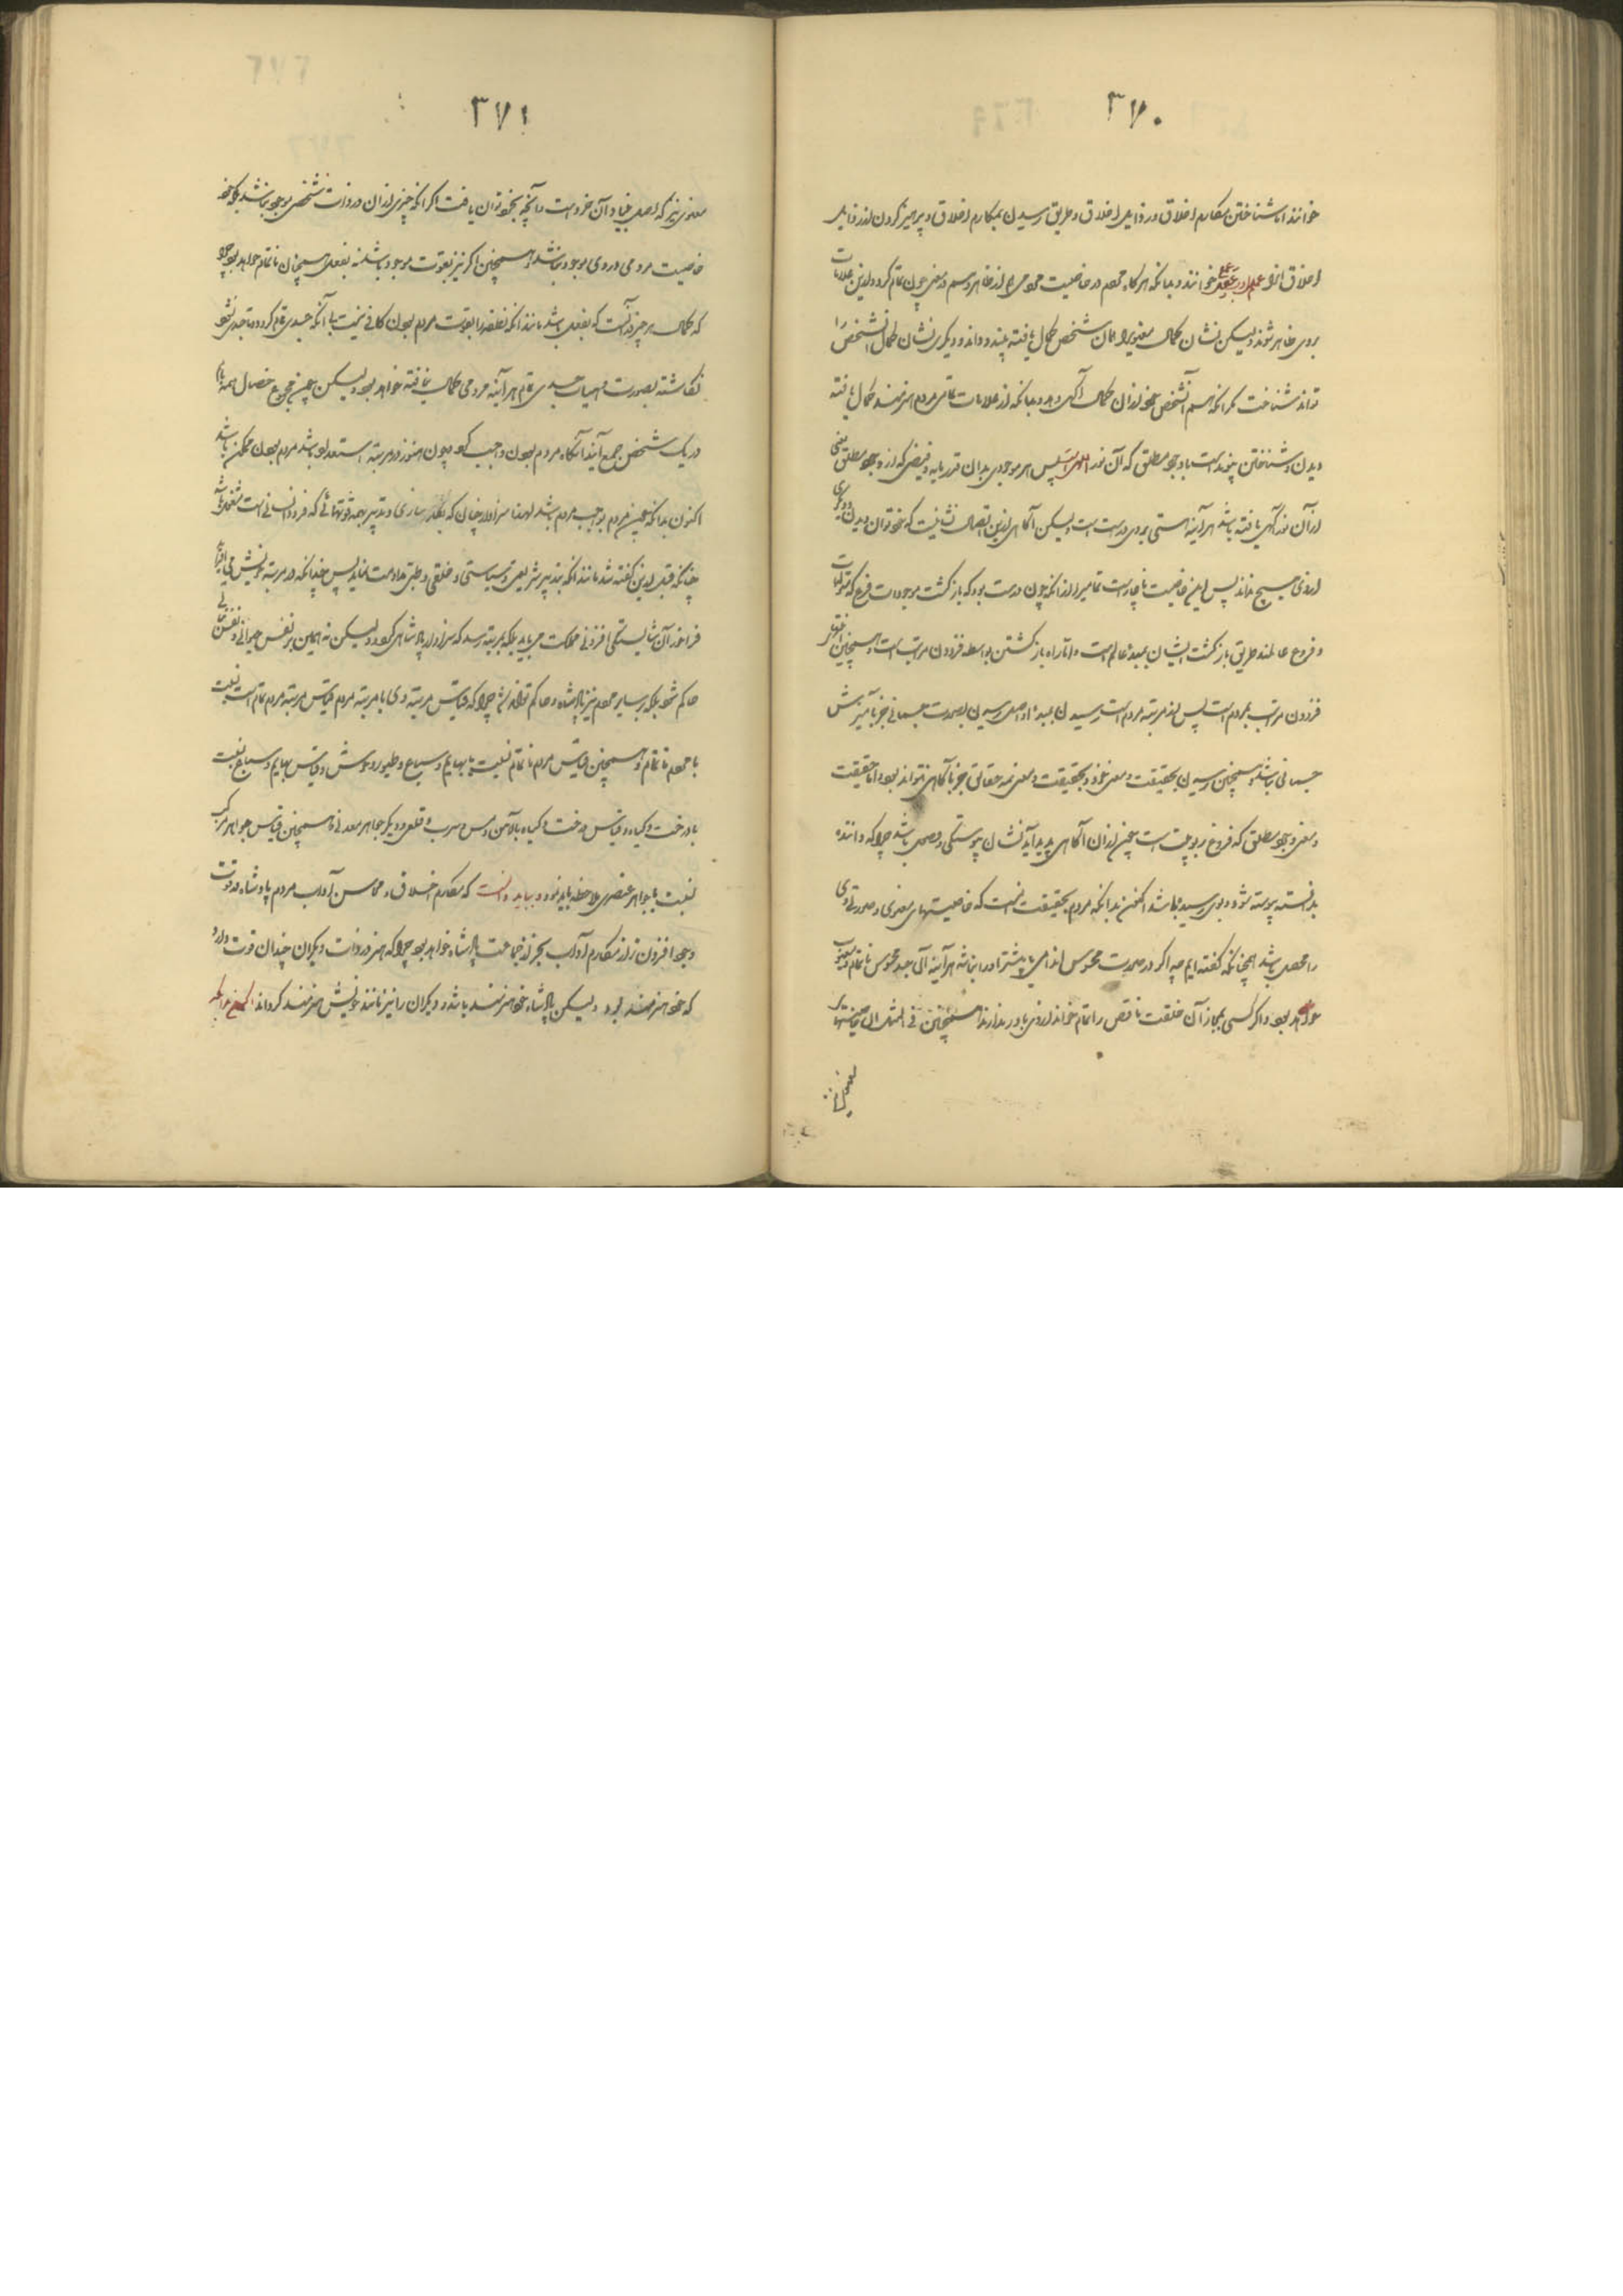 ۳۷۰
خوانند اما شناختن مکارم اخلاق و رذایل اخلاق و طریق رسیدن بمکارم اخلاق و پرهیز کردن از رذایل
اخلاق انرا علم خوانند و بدانکه هرگاه مردم در خاصیت مردمی هم از ظاهر و هم در معنی چون تمام گردد این علامات
بروی ظاهر شوند و لیکن نشان کمال معنویرا همان شخص کمال یافته بیند و داند و دیگری نشان کمال آنشخص را
تواند شناخت مگر آنکه هم آنشخص خود از آن کمال آگهی دهد و بدانکه از علامات تمامی مردم هنرمند کمال یافته
دیدن و شناختن پیوند است با وجود مطلق که آن نور الهی است پس هر موجودی بدان قدر پایه و فیضی که از وجود مطلق یعنی
از آن نور آگهی یافته باشد هر آینه هستی بروی درست است و لیکن آگاهی ازین اتصال نشانیست که خود توان دید و دیگری
از وی هیچ نداند پس این خاصیت ناچار است تمامیرا از آنکه چون درست بود که بازگشت موجودات فرع که متولدات
و فروع عالمند طریق بازگشت ایشان بمبدأ عالم است و اما راه بازگشتن بواسطه فزودن مراتب است و همچنین
فزودن مراتب بمردم است پس از مرتبه مردم است رسیدن بمبدأ و اصل رسیدن بصورت جسمانی جز بآمیزش
جسمانی نباشد و همچنان رسیدن بحقیقت و معنی خود و بحقیقت و معنی همه حقایق جز بآگاهی نتواند بود و اما حقیقت
و معنی وجود مطلق که فروغ ربوبیت است چون از آن آگاهی پدید آید نشان پیوستگی و وصول باشد چرا که داننده
بدانسته پیوسته شود و بوی رسیده باشد اکنون بدانکه مردم بحقیقت آنست که خاصیتهای معنوی و صورتی وی
را حاصل باشد همچنانکه گفته ایم چه اگر در صورت محسوس اندامی یا بیشتر او را نباشد هر آینه آن جسد محسوس ناتمام و معیوب
خواهد بود و اگر کسی بمجاز آن خلقت ناقص را تمام خواند از وی باور ندارند همچنین فی المثل از خاصیتهای
۳۷۱
معنوی نیز که اصل و بنیاد آن خرد است و آنچه بخود توان یافت اگر آنکه چیزی از آن در ذات شخص موجود نباشد
خاصیت مردمی در وی موجود نباشد و همچنین اگر نیز بقوت موجود باشد نه بفعل همچنان ناتمام خواهد بود چرا
که کمال هر چیز در آنست که بفعل باشد مانند آنکه نطفه را بقوت مردم بودن کافی نیست تا آنکه جسدی تمام گردد و تا جسدی نشود
نگاشته بصورت و هیأت جسدی تمام هر آینه مردمی کمال نیافته خواهد بود و لیکن چون مجموع خصال همه
در یک شخص جمع آیند آنگاه مردم بودن واجب گردد چون هنوز در مرتبه استعداد باشد مردم بودن ممکن باشد
اکنون بدانکه چون مردم بواجب مردم باشد لهذا سزاوار چنان که بکارسازی و تدبیر همه قوتهائی که فرود انسانی است مشغول باشد
چنانکه قبل ازین گفته شد مانند آنکه بتدبیر شریعی و سیاستی و خلقی و طبی مداومت نماید پس چنانکه در مرتبه خویش می افزاید
فراخور آن شایستگی افزونی مملکت می یابد بلکه بمرتبه رسد که سزاوار پادشاهی گردد و لیکن نه همین بر نفس حیوانی و نفس نباتی
حاکم شود بلکه بر سایر مردم نیز پادشاه و حاکم تواند شد چرا که قیاس مرتبه وی با مرتبه مردم قیاس مرتبه مردم تمام است بنسبت
با مردم ناتمام و همچنین قیاس مردم ناتمام بنسبت با بهایم و سباع و طیور و وحوش و قیاس بهایم و سباع بنسبت
با درخت و گیاه و قیاس درخت و گیاه با آهن و مس و سرب و قلعی و دیگر جواهر معدنی و همچنین قیاس جواهر مرکب
بنسبت با جواهر عنصری ملاحظه باید نمود و بباید دانست که مکارم اخلاق و محاسن آداب مردم پادشاه در قوت
وجود افزون تر از مکارم آداب بجز از جماعت پادشاه خواهد بود چرا که هنر در ذات دیگران چندان قوت دارد
که خود هنرمند بود و لیکن پادشاه خود هنرمند باشد و دیگران را نیز مانند خویش هنرمند گرداند